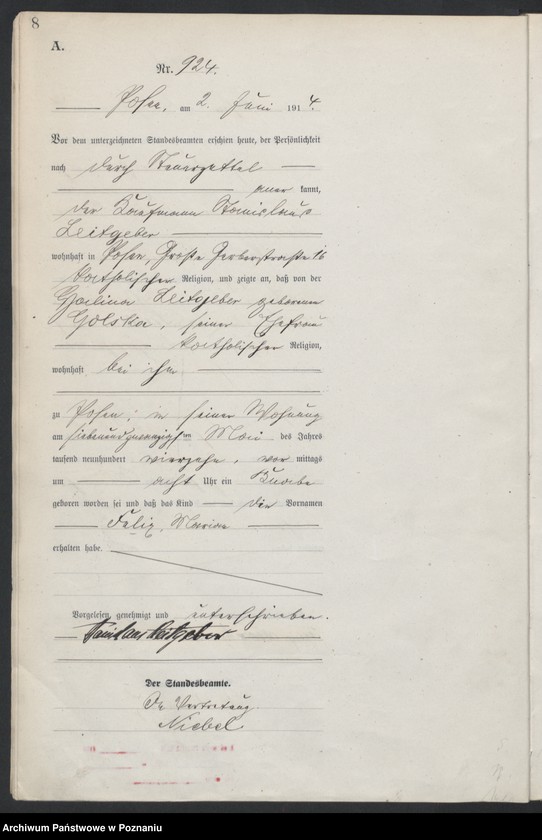 8
A.
Nr. 924.
Posen, am 2. Juni 1914.
Vor dem unterzeichneten Standesbeamten erschien heute, der Persönlichkeit
nach durch Steuerzettel
aner kannt,
der Kaufmann Stanislaus
Leitgeber
wohnhaft in Posen, Große Gerberstraße 16
katholischer Religion, und zeigte an, daß von der
Halina Leitgeber geborenen
Golska, seiner Ehefrau
katholischer Religion,
wohnhaft bei ihm
zu Posen, in seiner Wohnung
am siebenundzwanzigsten Mai des Jahres
tausend neunhundert vierzehn, vor mittags
um acht Uhr ein Knabe
geboren worden sei und daß das Kind die Vornamen
Felix, Marian
erhalten habe.
Vorgelesen, genehmigt und unterschrieben.
Stanislaus Leitgeber
Der Standesbeamte.
In Vertretung.
Niebel
Archiwum Państwowe w Poznaniu